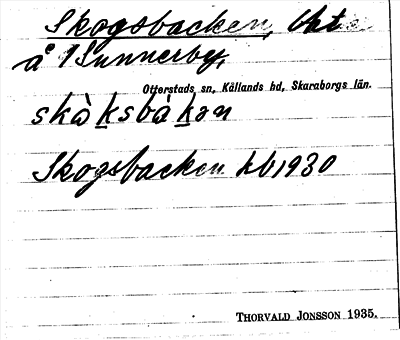 Skogsbacken, lht
å 1 Sunnerby,
Otterstads sn, Kållands hd, Skaraborgs län.
skàksbàkən
Skogsbacken hb 1930
THORVALD JONSSON 1935.